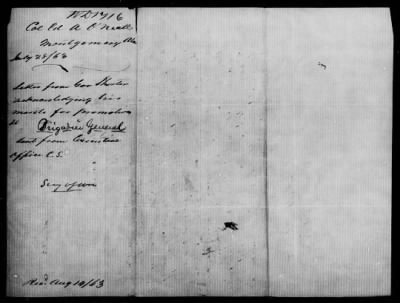 Col Ed A O'Neal
Montgomery Ala
July 28/63
Letter from Gov Shorter
acknowledging his
merits for promotion
to Brigadier General
sent from Executive
Office C.S.
Secy of War
Recd Aug 10/63